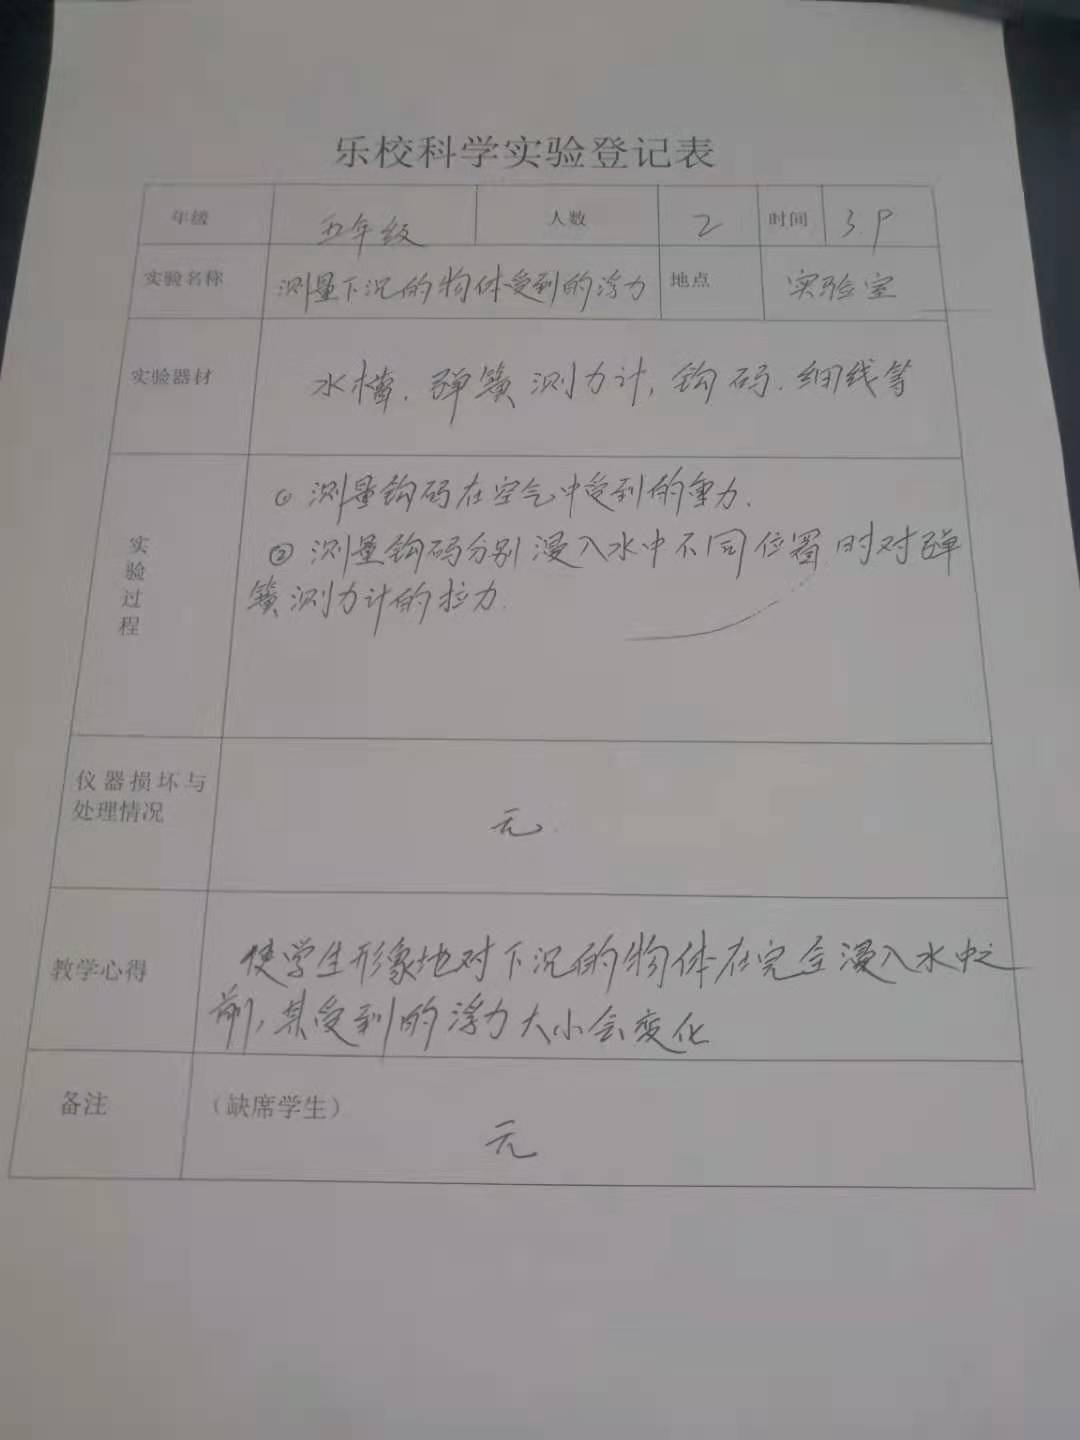 乐校科学实验登记表
年级 五年级 人数 2 时间 3.9
实验名称 测量下沉的物体受到的浮力 地点 实验室
实验器材 水槽、弹簧测力计、钩码、细线等
实验过程
① 测量钩码在空气中受到的重力.
② 测量钩码分别浸入水中不同位置时对弹
簧测力计的拉力.
仪器损坏与
处理情况
无.
教学心得
使学生形象地对下沉的物体在完全浸入水中之
前,其受到的浮力大小会变化
备注 (缺席学生)
无